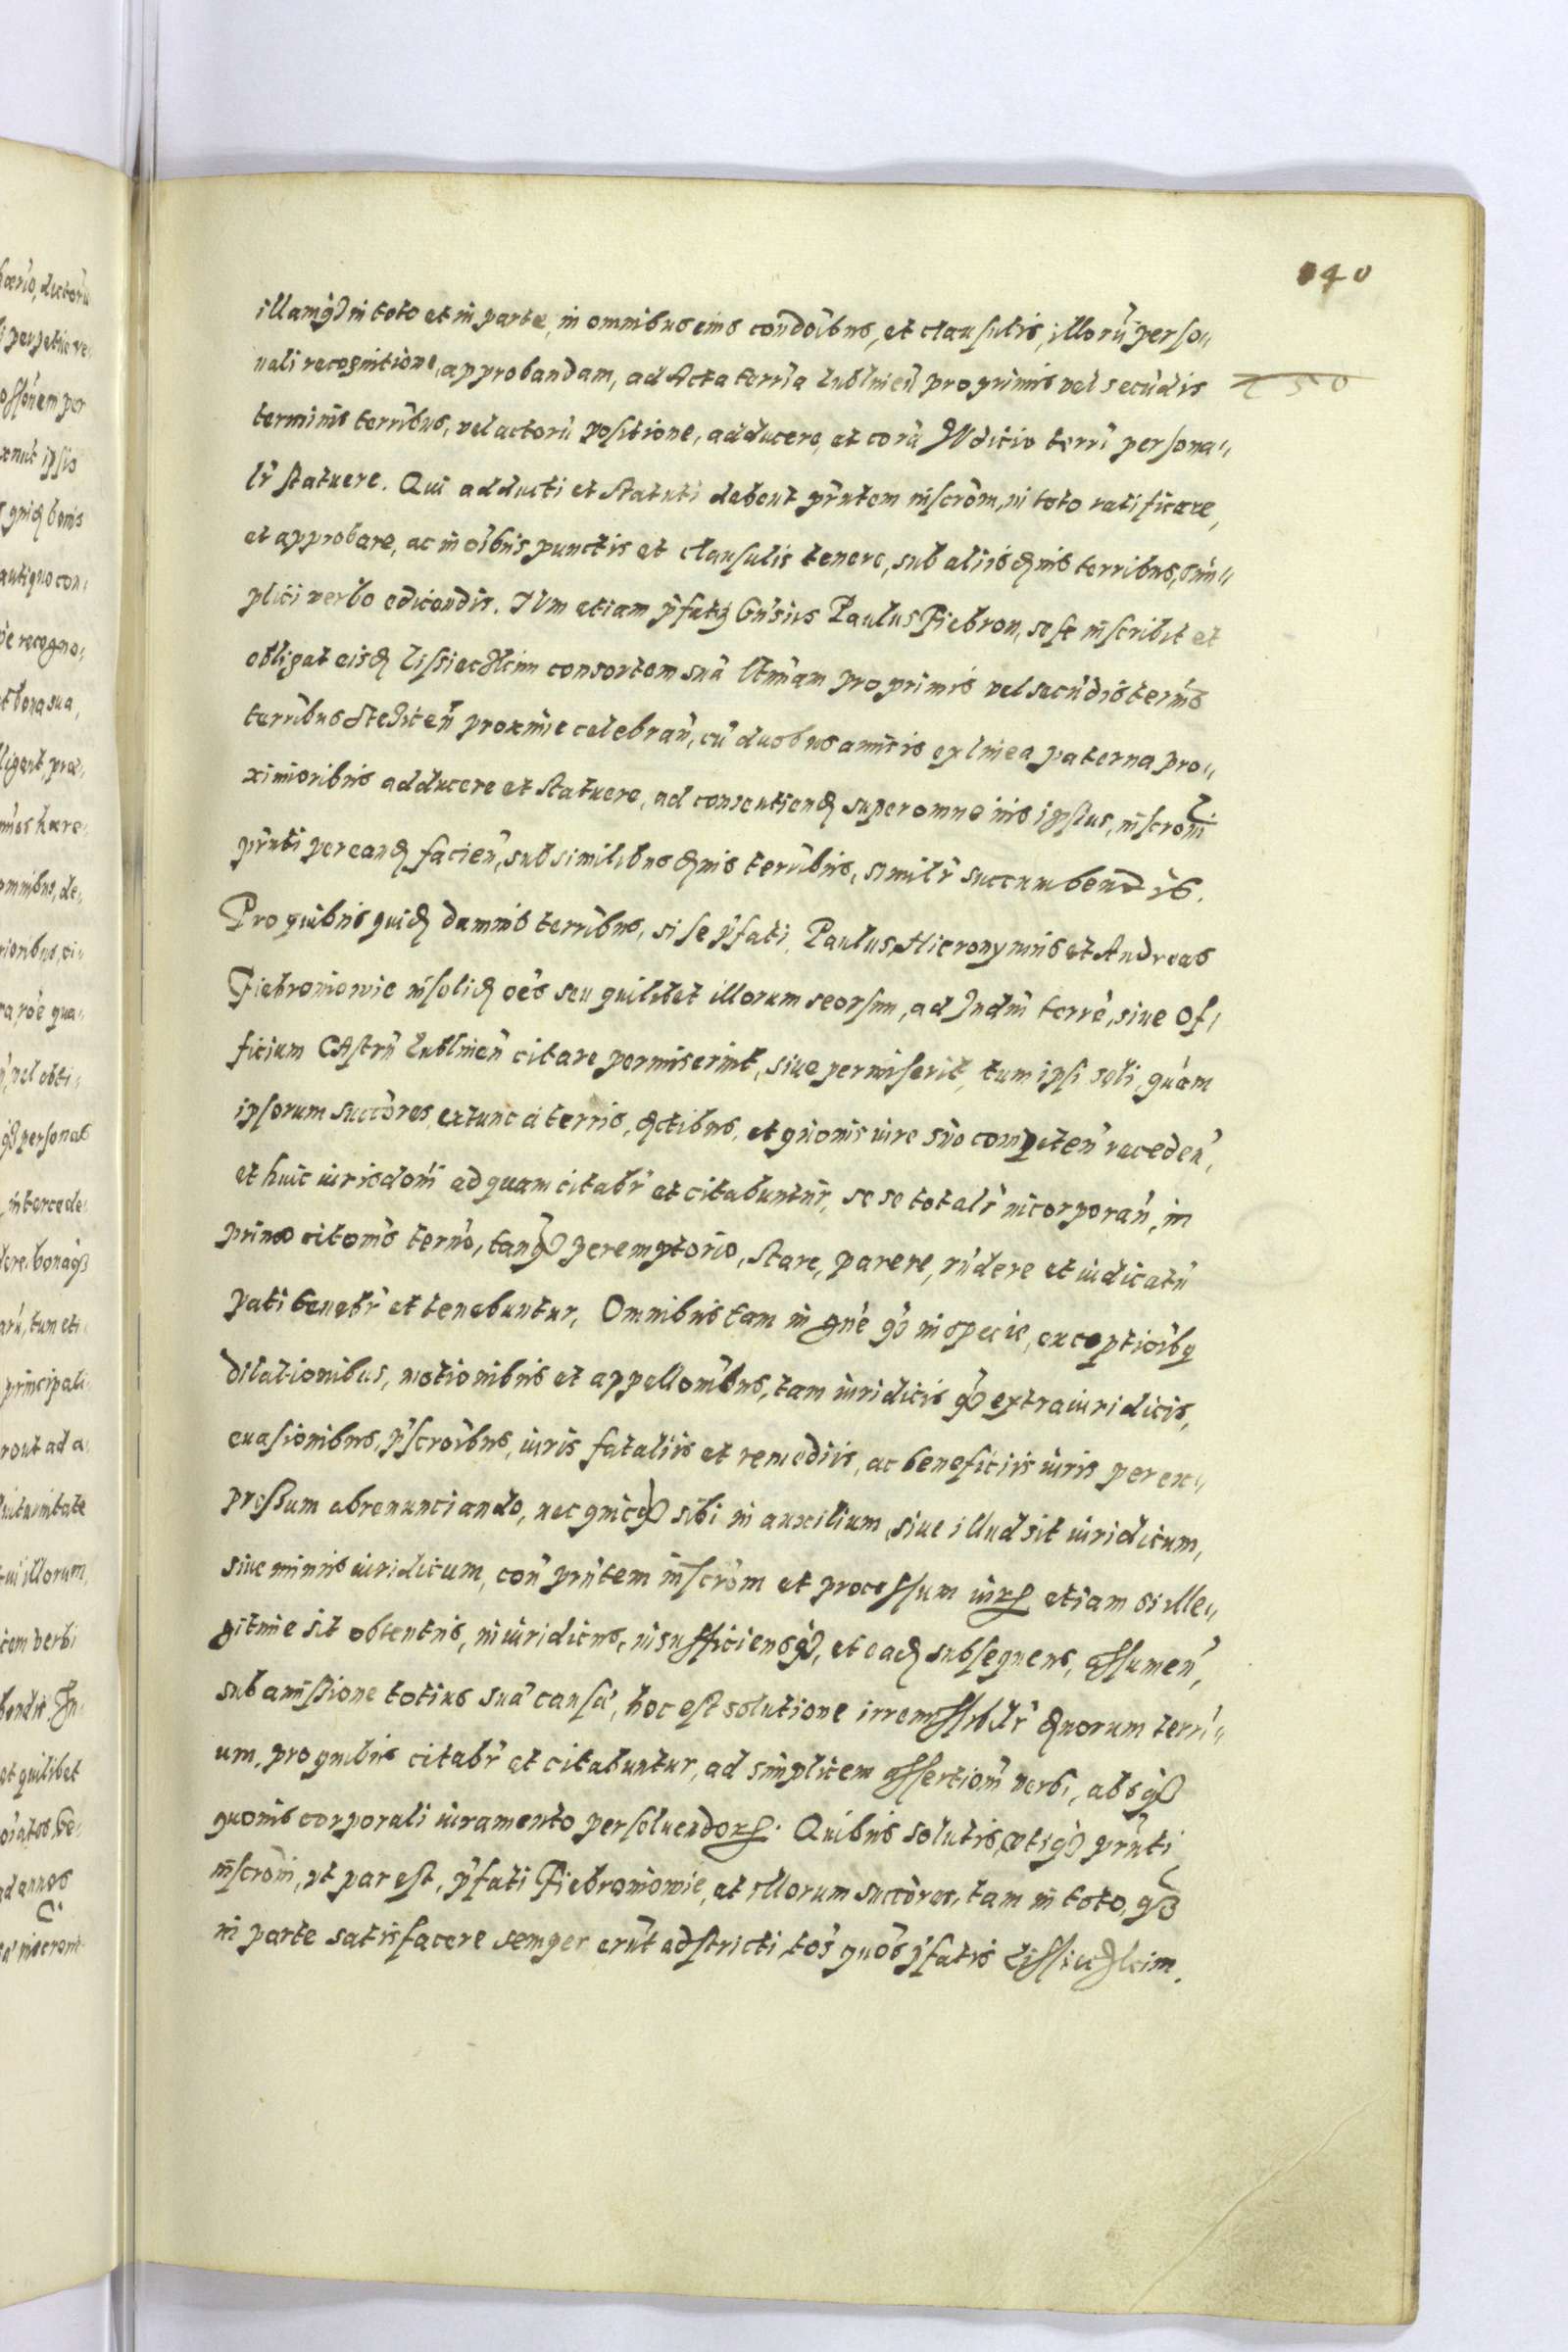 140
illamq in toto et in parte, in omnibus eius condoibus, et clausulis, illorū perso„
nali recognitione, approbandam, ad Acta terria Lublineñ pro primis vel secūdis
250
terminis terribus, vel actorū positione, adducere, et corā Iudicio terri persona„
lr statuere. Qui adducti et statuti debent pritem inscrom, in toto ratificare,
et approbare, ac in oibus punctis et clausulis tenere, sub aliis dnis terribus, sim„
plici verbo edicendis. Tum etiam pfatq Gnsus Paulus Fiebron, sese inscribit et
obligat eisd consortem suā ltimam pro primis vel secūdis termis
terribus proxime celebrań, cū duobus amicis ex linea paterna pro„
ximioribus adducere et statuere, ad consentiend super omne ius ipsius, inscroni
prnti per eand facień, sub similibus dnis terribus, similr succumbendis.
Pro quibus quid damnis terribus, si se pfati Paulus, Hieronymus et Andreas
Fiebronowie insolid oes seu quilibet illorum seorsim, ad Iudm terre, siue Of„
ficium Castrn Lublineń citare permiserint, siue permiserit, tum ipsi soli, quam
ipsorum succores, extunc a terris, dctibus, et quouis iure suo competeń recedeń,
et huic iurisdoni ad quam citabr et citabuntur, se se totalr incorporań, in
primo citonis termo, tanq peremptorio, stare, parere, rndere et iudicatū
pati tenebr et tenebuntur, Omnibus tam in gne q in specie, exceptioibq
dilationibus, motionibus et appellonibus, tam iuridicis q extraiuridicis,
euasionibus, pscroibus, iuris fataliis et remediis, ac beneficiis iuris per ex„
pressum abrenunciando, nec quicq sibi in auxilium, siue illud sit iuridicum,
siue minus iuridicum, coń prntem inscrom et processum iurs etiam si ille„
gitime sit obtentus, iniuridicus, insufficiensq, et ead subsequens, assumeń,
sub amissione totius sua causa, hoc est solutione irremissiblr dnorum terri„
um, pro quibus citabr et citabuntur, ad simplicem assertiom verbi, absq
quouis corporali iuramento persoluendors. Quibus solutis, prnti
inscroni, vt par est, pfati Fiebronowie, et illorum succores, tam in toto, q
in parte satisfacere semper erūt adstricti, tos quos pfatis